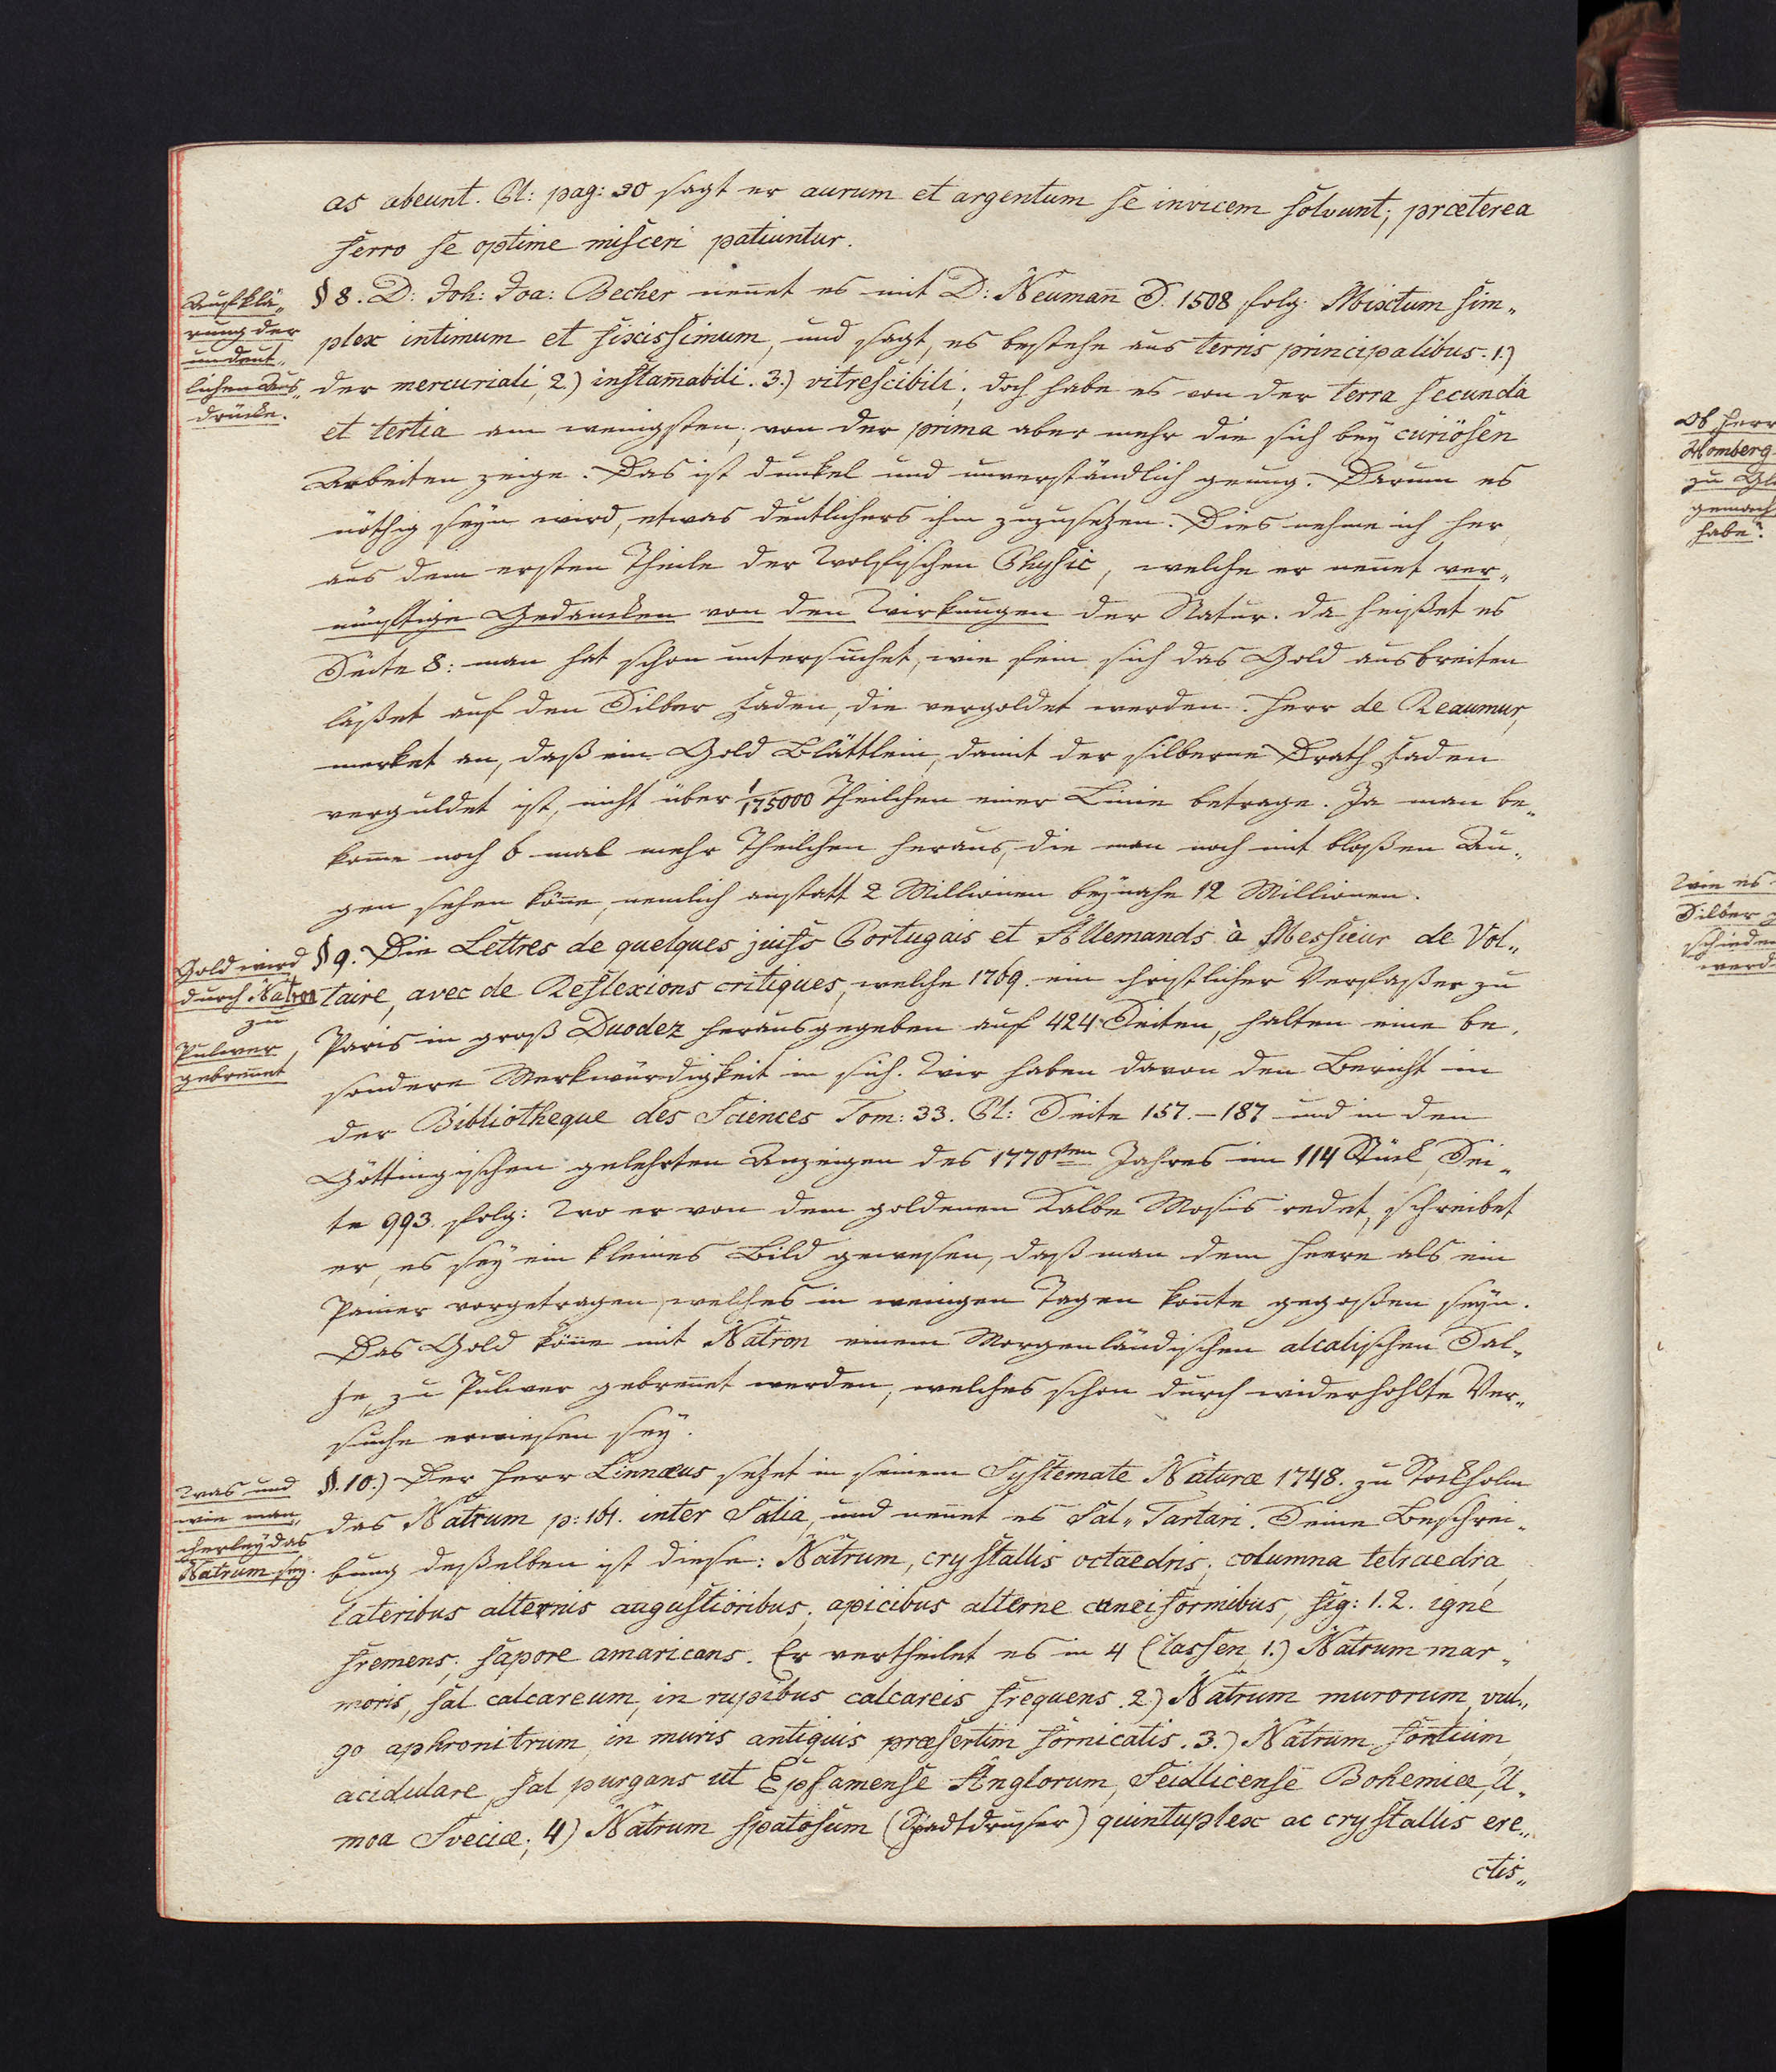 as abeunt. Pl: pag: 30 sagt er aurum et argentum se invicem solvunt; præterea
ferro se optime misceri patiuntur.
Aufklä„
rung der
undeut„
lichen Aus„
drücke.
§ 8. D: Joh: Joa: Becher nen̄et es mit D: Neuman̄ S. 1508 folg: Mixtum sim„
plex intimum et fixissimum, und sagt, es bestehe aus terris principalibus. 1.)
der mercuriali, 2.) inflam̄abili. 3.) vitrescibili; doch habe es von der terra secunda
et tertia am wenigsten, von der prima aber mehr die sich beÿ curiösen
Arbeiten zeige. Das ist dunkel und unverständlich genug. Darum es
nöthig seÿn wird, etwas deutlichers ihm zuzusetzen. Dies nehme ich her
aus dem ersten Theile der Wolfischen Physic, welche er nen̄et ver„
nünftige Gedancken von den Wirkungen der Natur. da heißet es
Seite 8: man hat schon untersuchet, wie fein sich das Gold ausbreiten
läßet auf den Silber faden, die vergoldet werden. Herr de Reaumur,
merket an, daß ein Gold Blättlein, damit der silberne Drath faden
verguldet ist, nicht über 1/175000 Theilchen einer Linie betrage. Ja man be„
kom̄e noch 6 mal mehr Theilchen heraus, die man noch mit bloßen Au„
gen sehen kön̄e, nemlich anstatt 2 Millionen beÿnahe 12 Millionen.
Gold wird
durch Natron
zu
Pulver
gebren̄et
§ 9. Die Lettres de quelques juifs Portugais et Allemands à Messieur de Vol„
taire, avec de Reflexions critiques, welche 1769. ein christlicher Verfaßer zu
Paris in groß Duodez herausgegeben auf 424 Seiten, halten eine be„
sondere Merkwürdigkeit in sich. Wir haben davon den Bericht in
der Bibliotheque des Sciences Tom: 33. Pl: Seite 157.–187 und in den
Göttingischen gelehrten Anzeigen des 1770sten Jahres im 114 Stück, Sei„
te 993. folg: Wo er von dem goldenen Kalbe Mosis redet, schreibet
er, es seÿ ein kleines Bild gewesen, daß man dem Heere als ein
Panier vorgetragen, welches in wenigen Tagen kon̄te gegoßen seÿn.
Das Gold kön̄e mit Natron einem Morgenländischen alcalischen Sal„
ze, zu Pulver gebren̄et werden, welches schon durch widerhohlte Ver„
suche erwiesen seÿ.
Was und
wie man„
cherleÿ das
Natrum seÿ.
§. 10.) Der Herr Linnæus setzet in seinem Systemate Naturæ 1748. zu Stockholm
das Natrum p: 161. inter Salia, und nen̄et es Sal„ Tartari. Seine Beschrei„
bung deßelben ist diese: Natrum, crystallis octaedris; columna tetraedra,
lateribus alternis augustioribus; apicibus alterne cuneiformibus, fig: 1. 2. igne
fremens; sapore amaricans. Er vertheilet es in 4 Classen, 1.) Natrum mar„
moris, sal calcareum, in rupibus calcareis frequens. 2.) Natrum murorum, vul„
go aphronitrum, in muris antiquis præsertim fornicatis. 3.) Natrum fontium,
acidulare, sal purgans ut Epsamense Anglorum, Seidlicense Bohemiæ, U„
moa Sveciæ; 4) Natrum spatosum (Spadtdruser) quintuplex ac crystallis ere„
ctis„
Ob Herr
Homberg
zu
gemach
habe?
Wie es
Silber
schieden
werd